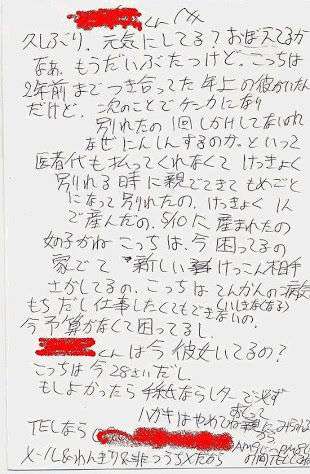 くんへ
久しぶり。元気にしてる? おぼえてるか
なぁ、もうだいぶたっけど。こっちは
2年前までつき合ってた年上の彼がいたん
だけど。次のことでケンカになり
別れたの1回しかけしてないのれ
なぜにんしんするのか。といって
医者代も払ってくれなくてけっきょく
別れる時に親でてきてもめごと
になって別れたの。けっきょく1人
で産んだの。5/10に産まれたの
女の子がね こっちは、今困ってるの
家でて 新しいけっこん相手
さがしてるの、こっちはてんかんの病気
もちだし仕事したくてもできないの。
(いしきなくなる)
今予算がなくて困ってるし。
くんは今彼女いてるの?
こっちは今28さいだし
もしよかったら手紙ならレターで必ず
おくって
ハガキはやめてね
TELなら
メールもわんぎりも非つうちダメだから
の間TEL